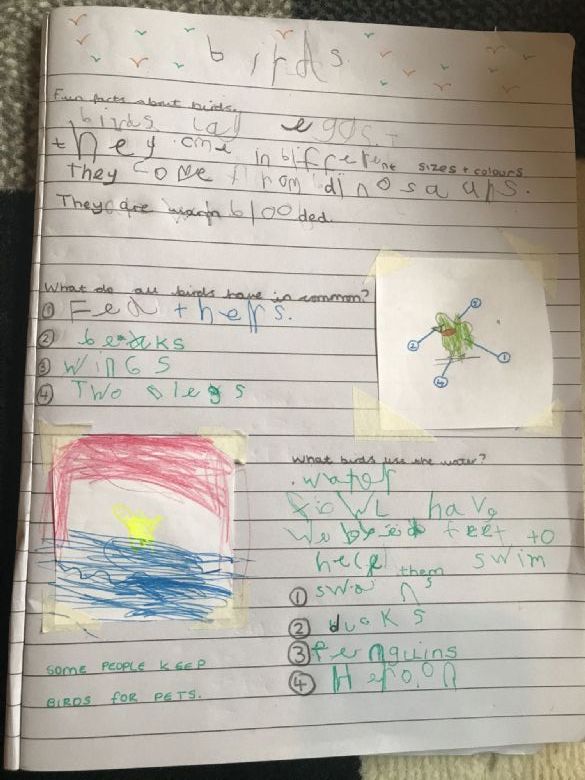 birds
Fun facts about birds.
birds lay eggs.
they come in different sizes + colours
They come from dinosaurs.
They are warm blooded.
What do all birds have in common?
① Feathers.
② beaks
③ WINGS
④ Two legs
③
② ①
④
What birds use the water?
. water
fowl have
Webbed feet to
help them swim
① swans
② ducks
③ Penguins
④ Heron
SOME PEOPLE KEEP
BIRDS FOR PETS.